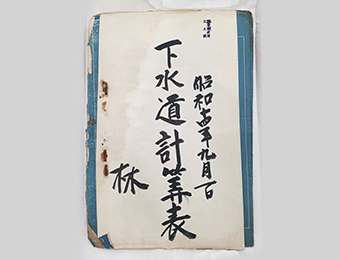 昭和十四年九月一日
下水道計算表
林